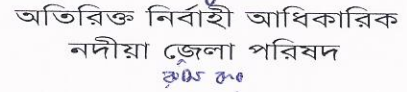 অতিরিক্ত নির্বাহী আধিকারিক
নদীয়া জেলা পরিষদ